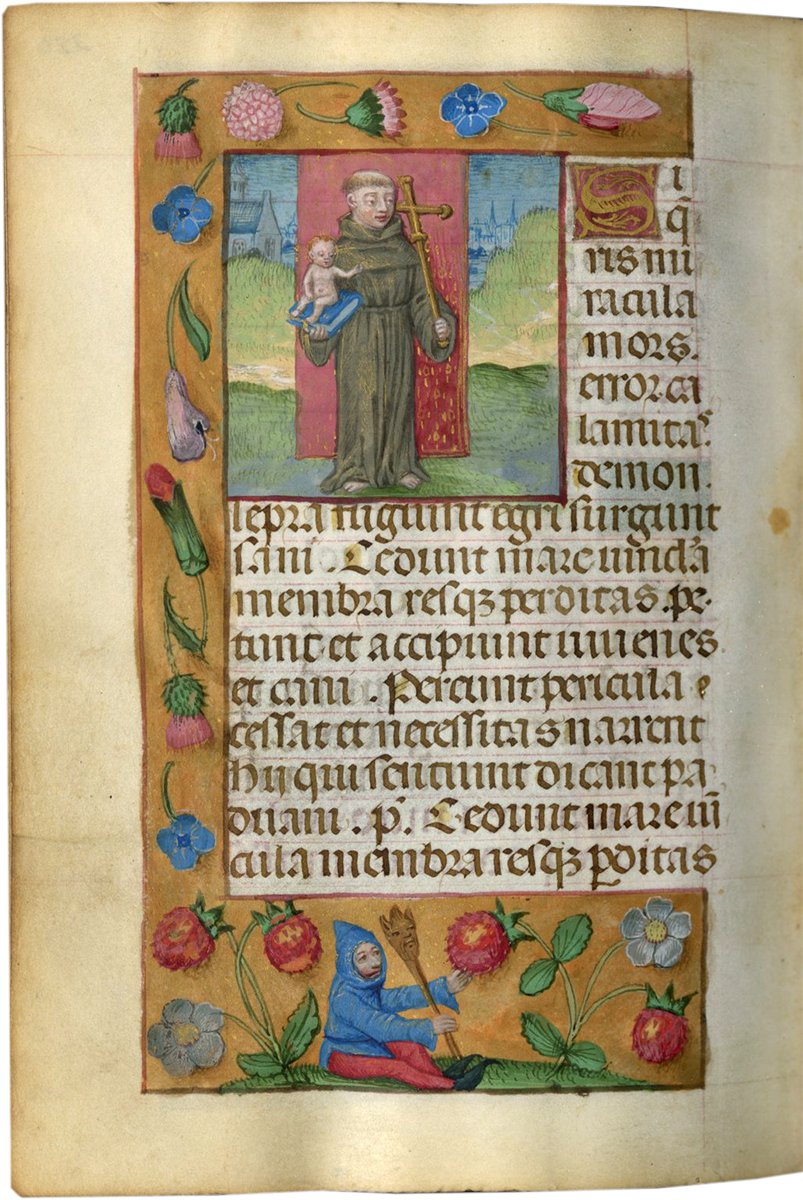 Si
q̄
ris mi
racula
mors.
error. ca
lamitas.
demon.
lepra fugiunt egri surgunt
sani . Cedunt mare uincl'a
membra resqꝫ perditas . pe-
tunt et accipiunt iuuenes
et cani . Pereunt pericula e
cessat et necessitas narrent
hij qui sentiunt dicant pa
duani . p̄. Cedunt mare uī
cula membra resqꝫ ꝑditas